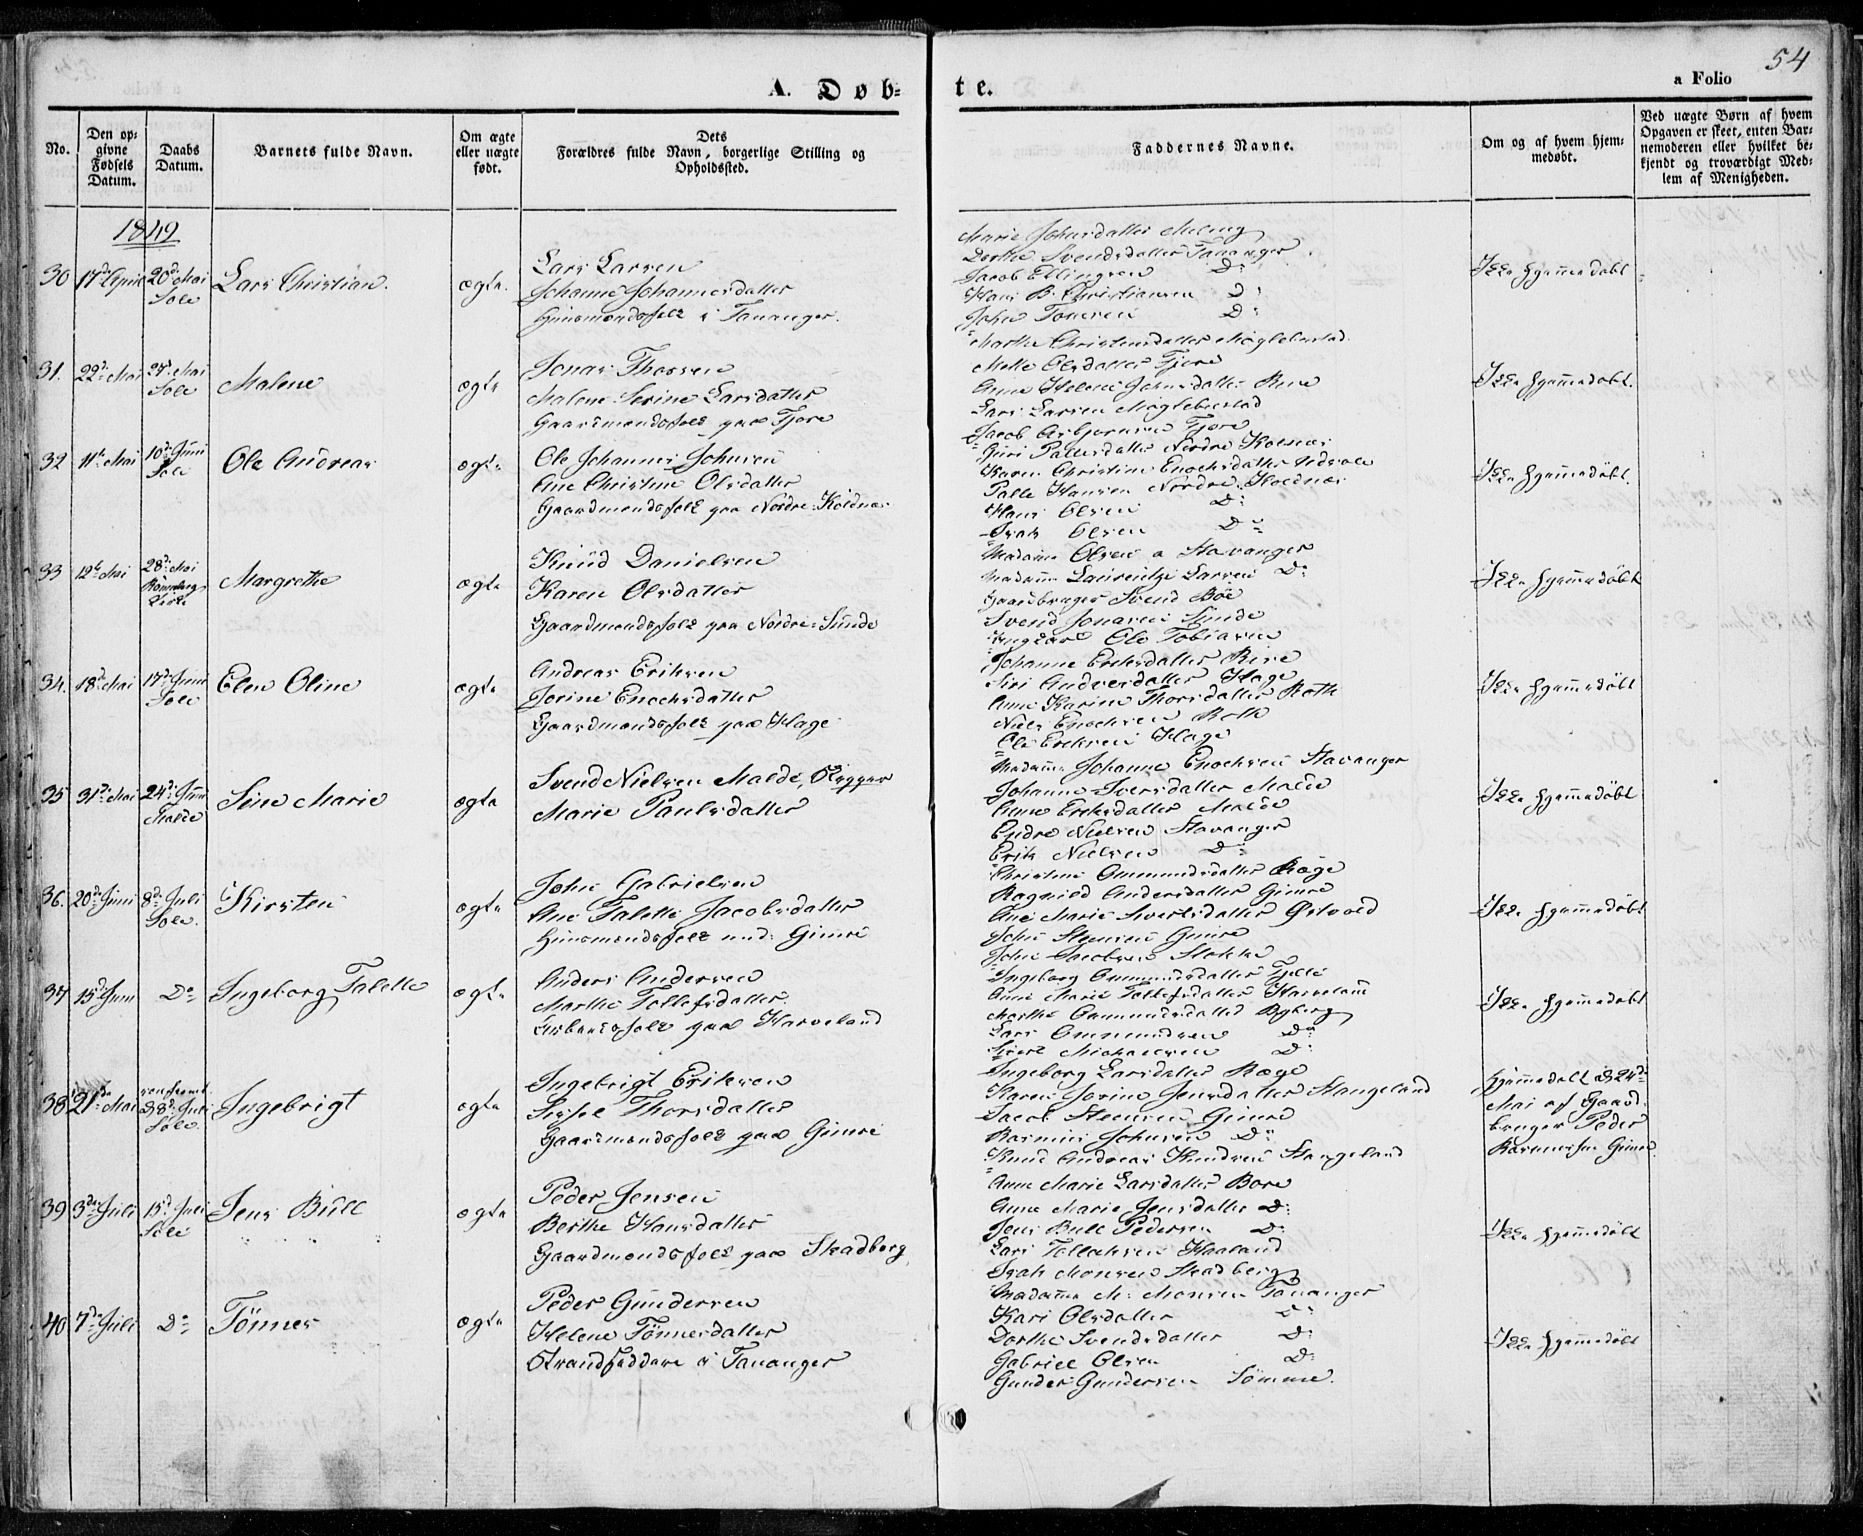 54
A. Døb=
te.
a Folio
No.
Den op=
givne
Fødsels
Datum.
Daabs
Datum.
Barnets fulde Navn.
Om ægte
eller uægte
født.
Dets
Forældres fulde Navn, borgerlige Stilling og
Opholdssted.
Faddernes Navne.
Om og af hvem hjem=
medøbt.
Ved uægte Børn af hvem
Opgaven er skeet, enten Bar=
nemoderen eller hvilket be=
kjendt og troværdigt Med=
lem af Menigheden.
1849
30
17d April
20d Mai
Sole
Lars Christian.
ægte.
Lars Larsen
Johanne Johannesdatter
Huusmandsfolk i Tananger.
Marie Johnsdatter Meling
Dorthe Svendsdatter Tananger
Jacob Ellingsen Do
Hans B. Christiansen Do
John Tonesen Do
Ikke hjemmedøbt
31.
22d Mai
27d Mai
Sole
Malene
ægte
Jonas Thorsen
Malene Serine Larsdatter
Gaardmandsfolk paa Fjore
Marthe Christensdatter Møglebustad
Mette Olsdatter Fjore
Anne Helene Johnsdatter
Lars Larsen Møglebustad
Jacob Asbjornsen Fjore
Ikke hjemmedøbt.
32
11te Mai
10d Juni
Sole
Ole Andreas
ægte
Ole Johannes Johnsen
Ane Christine Olsdatter
Gaardmandsfolk paa Nordre Koldnæs
Guri Pallesdatter Nordre Kolnæs
Karen Christine Enochsdatter
Palle Hansen Nordre Kolnæs
Hans Olsen Do
Isak Olsen Do
Ikke hjemmedøbt.
33
12te Mai
28d Mai
Rønneberg
Kirke
Margrethe
ægte
Knud Danielsen
Karen Olsdatter
Gaardmandsfolk paa Nordre Sunde
Madame Olsen a Stavanger
Madame Laurentze Larsen Do
Gaardbruger Svend Bøe
Svend Jonasen Sunde
Ungkarl Ole Tobiasen
Ikke hjemmedøbt
34.
18d Mai
17d Juni
Sole
Elen Oline
ægte
Andreas Eriksen
Jorine Enochsdatter
Gaardmandsfolk paa Hage
Johanne Eriksdatter Rise
Siri Andersdatter Hage
Anne Karine Thorsdatter Roth
Niels Enochsen Roth
Ole Eriksen Hage
Ikke hjemmedøbt
35
31d Mai
24d Juni
Malde
Sine Marie
ægte
Svend Nielsen Malde,
Marie Paulsdatter
Madame Johanne Enochsen Stavanger
Johanne Sversdatter Malde
Anne Eriksdatter Malde
Endre Nielsen Stavanger
Erik Nielsen Do
Ikke hjemmedøbt
36.
20de Juni
8de Juli
Sole.
Kirsten
ægte
John Gabrielsen
Ane Talette Jacobsdatter
Huusmandsfolk und: Gimre
Christine Ommundsdatter Røge
Ragnild Andersdatter Gimre
Ane Marie Sivertsdatter Østvold
John Steensen Gimre
John Jacobsen Stokke
Ikke hjemmedøbt
37
15d Juni
Do
Ingeborg Talette
ægte
Anders Andersen
Marthe Tollefsdatter
paa Harveland
Ingeborg Ommundsdatter Fjelde
Anne Marie Tollefsdatter Harveland
Marthe Ommundsdatter Byberg
Lars Ommundsen Do
Sivert Michaelsen Do
Ikke hjemmedøbt
38
21de Mai
d 8d Juli
Sole.
Ingebrigt
ægte
Ingebrigt Eriksen
Sissel Thorsdatter
Gaardmandsfolk paa Gimre
Ingeborg Larsdatter Røge
Karen Jorine Jensdatter Stangeland
Jacob Steensen Gimre
Rasmus Johnsen Do
Knud Andreas Knudsen Stangeland
Hjemmedøbt d 24de
Mai af Gaard
bruger Peder
Rasmussen Gimre.
39
3de Juli
15d Juli
Sole
Jens Bull
ægte
Peder Jensen
Berthe Hansdatter
Gaardmandsfolk paa Skadberg
Anne Marie Larsdatter Bore
Anne Marie Jensdatter Do
Jens Bull Pedersen Do
Lars Tollaksen Haaland
Isak Monsen Skadberg
Ikke hjemmedøbt
40
7de Juli
Do
Tönnes
ægte
Peder Gundersen
Helene Tönnesdatter
Strandsiddere i Tananger
Madame M. Monsen Tananger
Kari Olsdatter Do
Dorthe Svendsdatter Do
Gabriel Olsen Do
Gunder Gundersen Sömme.
Ikke hjemmedøbt